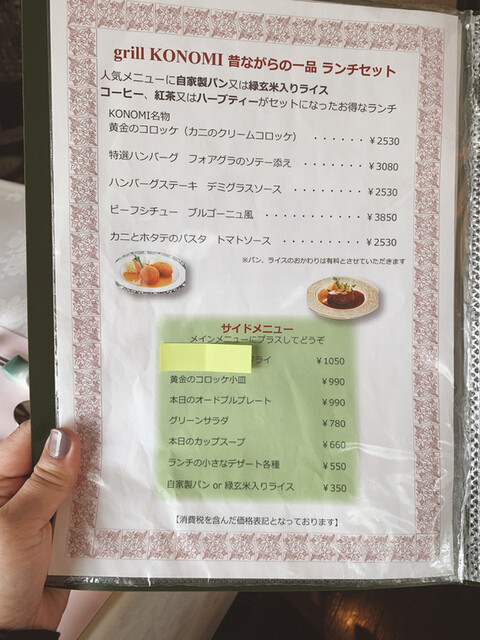 grill KONOMI 昔ながらの一品 ランチセット
人気メニューに自家製パン又は緑玄米入りライス
コーヒー、紅茶又はハーブティーがセットになったお得なランチ
KONOMI名物
黄金のコロッケ（カニのクリームコロッケ） ・・・・・・ ¥2530
特選ハンバーグ フォアグラのソテー添え ・・・・・・・ ¥3080
ハンバーグステーキ デミグラスソース ・・・・・・・・ ¥2530
ビーフシチュー ブルゴーニュ風 ・・・・・・・・・・・ ¥3850
カニとホタテのパスタ トマトソース ・・・・・・・・・ ¥2530
※パン、ライスのおかわりは有料とさせていただきます
サイドメニュー
メインメニューにプラスしてどうぞ
フライ ¥1050
黄金のコロッケ小皿 ¥990
本日のオードブルプレート ¥990
グリーンサラダ ¥780
本日のカップスープ ¥660
ランチの小さなデザート各種 ¥550
自家製パン or 緑玄米入りライス ¥350
【消費税を含んだ価格表記となっております】